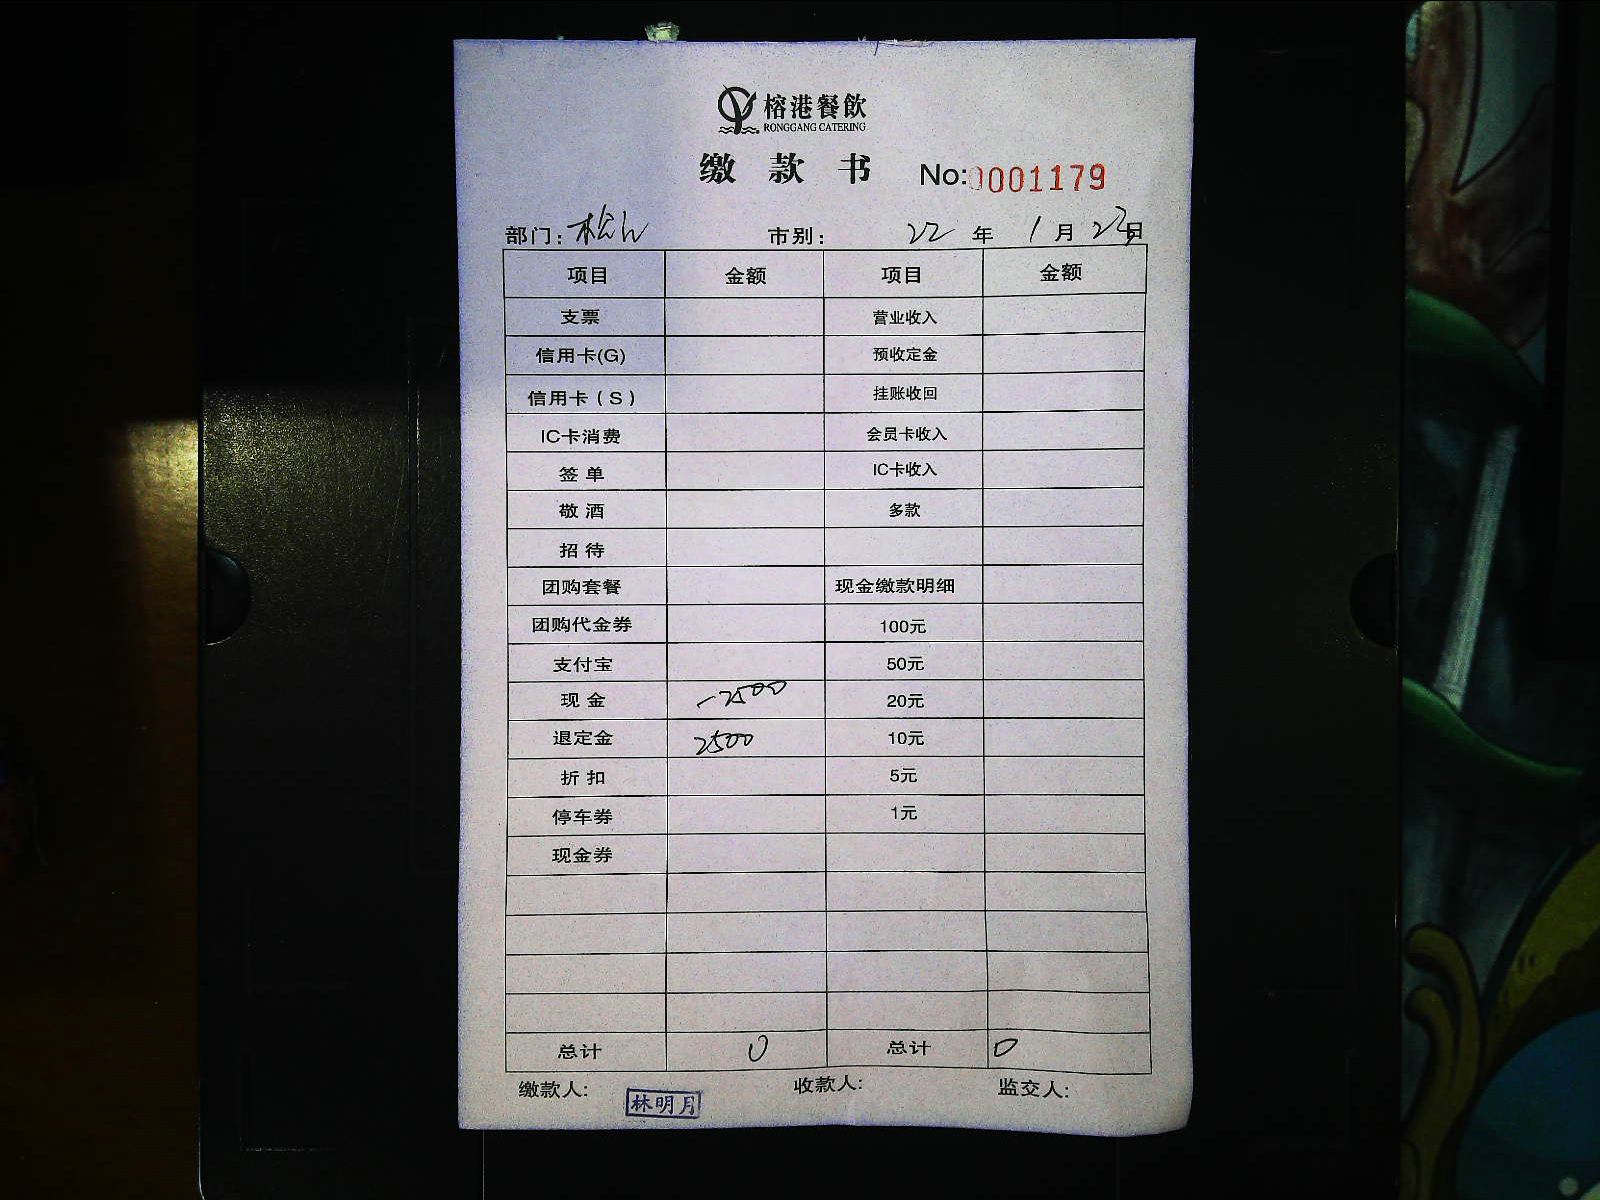 榕港餐飲
RONGGANG CATERING
缴款书 No:0001179
部门: 市别: 22年1月23日
项目 金额 项目 金额
支票 营业收入
信用卡(G) 预收定金
信用卡(S) 挂账收回
IC卡消费 会员卡收入
签单 IC卡收入
敬酒 多款
招待
团购套餐 现金缴款明细
团购代金券 100元
支付宝 50元
现金 -2500 20元
退定金 2500 10元
折扣 5元
停车券 1元
现金券
总计 0 总计 0
缴款人: 林明月 收款人: 监交人: